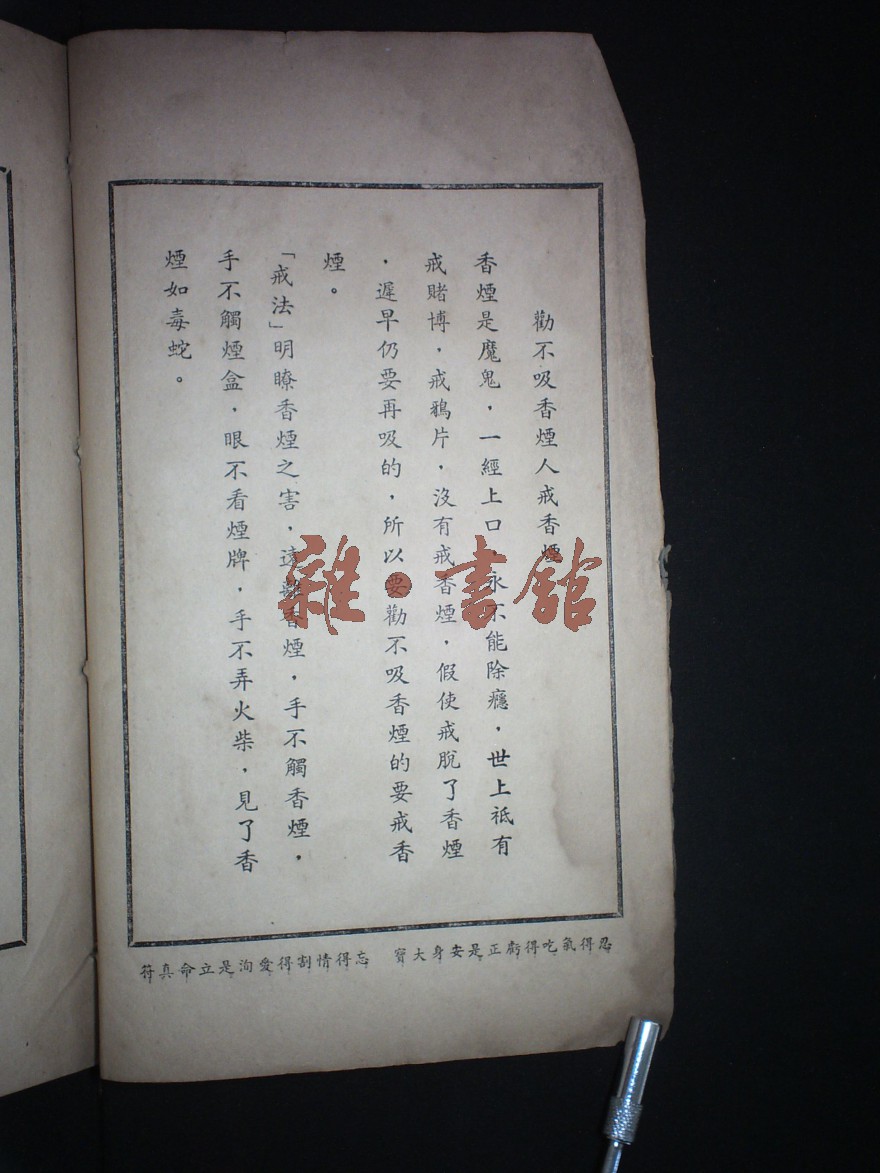 勸不吸香煙人戒香煙
香煙是魔鬼，一經上口，永不能除癮，世上祗有
戒賭博，戒鴉片，沒有戒香煙，假使戒脫了香煙
，遲早仍要再吸的，所以要勸不吸香煙的要戒香
煙。
「戒法」明瞭香煙之害，遠離香煙，手不觸香煙，
手不觸煙盒，眼不看煙牌，手不弄火柴，見了香
煙如毒蛇。
忍得氣吃得虧正是安身大寶　忘得情割得愛洵是立命真符
雜·書館